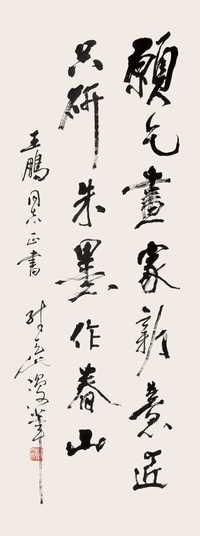 願乞畫家新意匠
只研朱墨作春山
王鵬同志正書